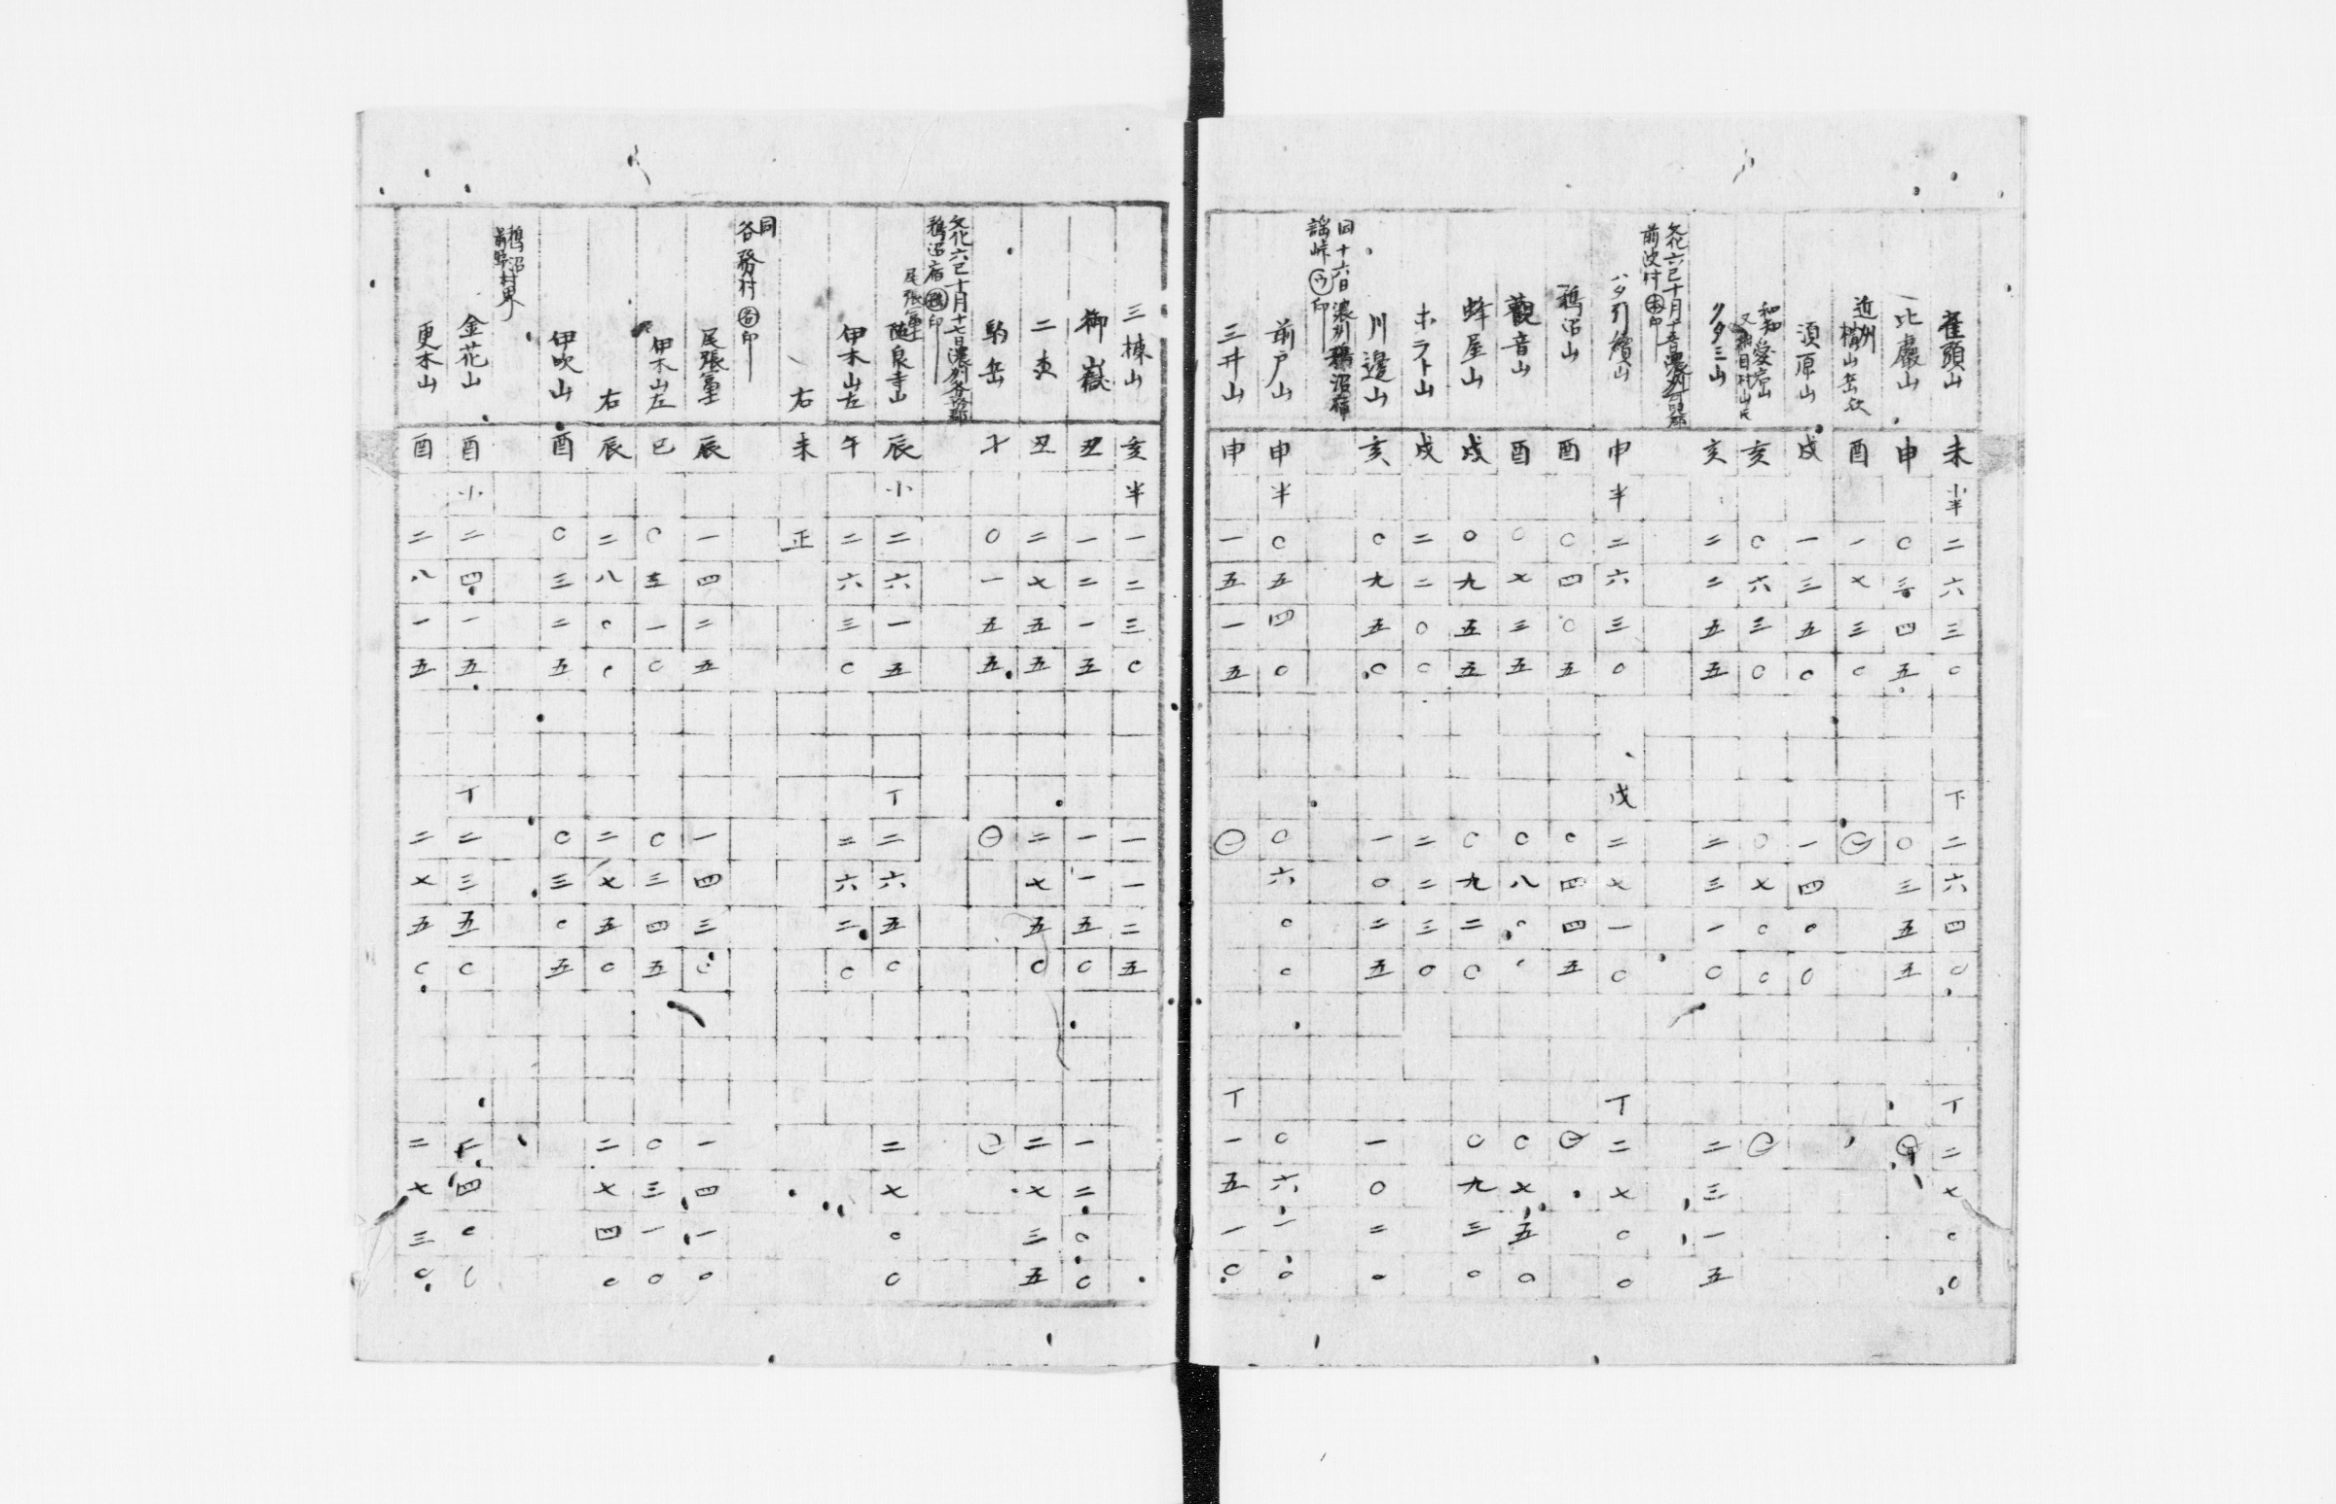 雀頭山 未 小半 二六三〇 下 二六四〇 丁 二七〇〇
比叡山 申 〇三四五 〇三五五 ㊀
近州 山岳欤 酉 一七三〇 ㊀
須原山 戌 一三五〇 一四〇〇
和知愛宕山 亥 〇六三〇 〇七〇〇 ㊀
タタミ山 亥 二二五五 二三一〇 二三一五
文化六巳十月十五日濃州可児郡
前波村 印
ハタ引續山 申 半 二六三〇 戌 二七一〇 丁 二七〇〇
鵜沼山 酉 〇四〇五 〇四四五 ㊀
觀音山 酉 〇七三五 〇八〇〇 〇七五〇
蜂屋山 戌 〇九五五 〇九二〇 〇九三〇
ホラト山 戌 二二〇〇 二二三〇
川邊山 亥 〇九五〇 一〇二五 一〇二〇
同十六日濃州鵜沼宿
謡峠 ウ印
前戸山 申 半 〇五四〇 〇六〇〇 〇六一〇
三井山 申 一五一五 ㊀ 丁 一五一〇
三棟山 亥 半 一二三〇 一一二五
御嶽 丑 一二一五 一一五〇 一二〇〇
二夾 丑 二七五五 二七五〇 二七三五
駒岳 子 〇一五五 ㊀ ㊀
文化六巳十月十七日濃州各務郡
鵜沼宿 鵜印
尾張冨士
随泉寺山 辰 小 二六一五 丁 二六五〇 二七〇〇
伊木山左 午 二六三〇 二六二〇
右 未 正
同
各務村 各印
尾張冨士 辰 一四二五 一四三〇 一四一〇
伊木山左 巳 〇五一〇 〇三四五 〇三一〇
右 辰 二八〇〇 二七五〇 二七四〇
伊吹山 酉 〇三二五 〇三〇五
鵜沼
前野村界
金花山 酉 小 二四一五 丁 二三五〇 二四〇〇
更木山 酉 二八一五 二七五〇 二七三〇